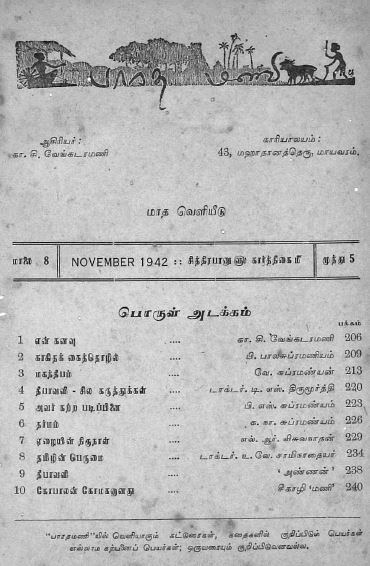 பாரத மணி
ஆசிரியர் :
கா. சி. வேங்கடரமணி
காரியாலயம் :
43, மஹாதானத்தெரு, மாயவரம்.
மாத வெளியீடு
மாலை 8
NOVEMBER 1942 :: சித்திரபானு௵ கார்த்திகை௴
முத்து 5
பொருள் அடக்கம்
பக்கம்
1 என் கனவு .... கா. சி. வேங்கடரமணி 206
2 காகிதக் கைத்தொழில் .... பி. பாலசுப்ரமணியம் 209
3 மகத்தீபம் .... வே. சுப்ரமண்யன் 213
4 தீபாவளி - சில கருத்துக்கள் .... டாக்டர். டி. எஸ். திருமூர்த்தி 220
5 அவர் கற்ற படிப்பினை .... பி. எஸ். சுப்ரமண்யம் 223
6 தர்மம் .... க. கா. சுப்ரமண்யம் 226
7 ஏழையின் திருநாள் .... எல். ஆர். விசுவநாதன் 229
8 தமிழின் பெருமை .... டாக்டர். உ. வே. சாமிநாதையர் 234
9 தீபாவளி .... ' அண்ணன் ' 238
10 கோபாலன் கோமகனானது .... சீகாழி 'மணி' 240
"பாரதமணி"யில் வெளியாகும் கட்டுரைகள், கதைகளில் குறிப்பிடும் பெயர்கள்
எல்லாம் கற்பனைப் பெயர்கள்; ஒருவரையும் குறிப்பிடுவனவல்ல.